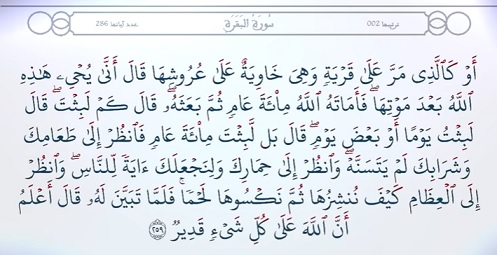 ترتيبها 002 سُورَةُ البَقَرَةِ عدد آياتها 286
أَوْ كَٱلَّذِى مَرَّ عَلَىٰ قَرْيَةٍ وَهِىَ خَاوِيَةٌ عَلَىٰ عُرُوشِهَا قَالَ أَنَّىٰ يُحْىِۦ هَٰذِهِ
ٱللَّهُ بَعْدَ مَوْتِهَا ۖ فَأَمَاتَهُ ٱللَّهُ مِا۟ئَةَ عَامٍ ثُمَّ بَعَثَهُۥ ۖ قَالَ كَمْ لَبِثْتَ ۖ قَالَ
لَبِثْتُ يَوْمًا أَوْ بَعْضَ يَوْمٍ ۖ قَالَ بَل لَّبِثْتَ مِا۟ئَةَ عَامٍ فَٱنظُرْ إِلَىٰ طَعَامِكَ
وَشَرَابِكَ لَمْ يَتَسَنَّهْ ۖ وَٱنظُرْ إِلَىٰ حِمَارِكَ وَلِنَجْعَلَكَ ءَايَةً لِّلنَّاسِ ۖ وَٱنظُرْ
إِلَى ٱلْعِظَامِ كَيْفَ نُنشِزُهَا ثُمَّ نَكْسُوهَا لَحْمًا ۚ فَلَمَّا تَبَيَّنَ لَهُۥ قَالَ أَعْلَمُ
أَنَّ ٱللَّهَ عَلَىٰ كُلِّ شَىْءٍ قَدِيرٌ ٢٥٩